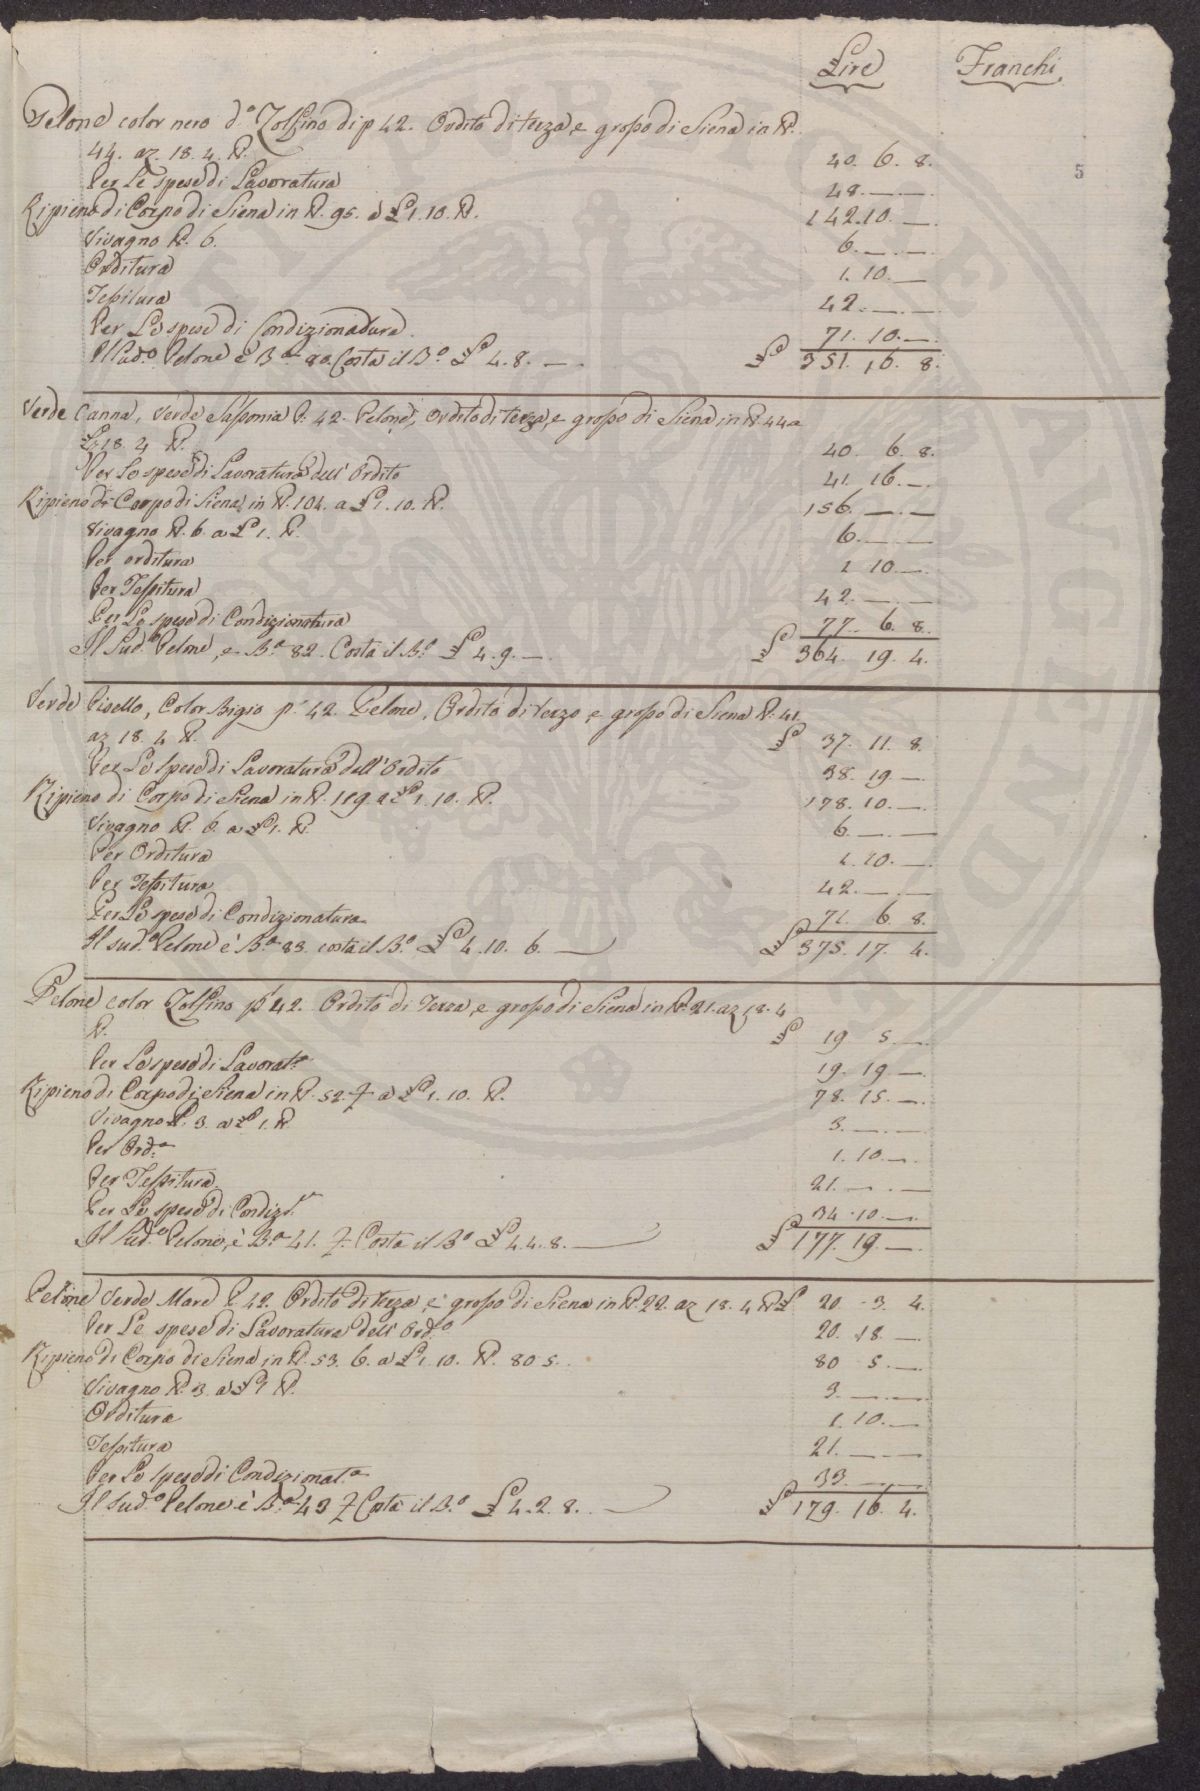 Lire Franchi
5
Pelone color nero d.º Zolfino di p 42. Ordito di terza, e grosso di Siena in ℔.
44. az. 18. 4. ℔. 40. 6. 8.
Per Le spese di Lavoratura 48. — —
Ripieno di Corpo di Siena in ℔. 95. a £ 1. 10. ℔. 142. 10. —
Vivagno ℔. 6. 6. — —
Orditura 1. 10. —
Tessitura 42. — —
Per Le spese di Condizionatura 71. 10. —
Il Sud.º Pelone è B.ª 80. Costa il B.º £ 4. 8. — £ 351. 16. 8.
Verde Canna, Verde Sassonia P. 42. Pelone, Ordito di terza, e grosso di Siena in ℔ 44 a
£ 18. 4 ℔. 40. 6. 8.
Per Le spese di Lavoratura dell' Ordito 41. 16. —
Ripieno di Corpo di Siena in ℔. 104. a £ 1. 10. ℔. 156. — —
Vivagno ℔. 6. a £ 1. ℔. 6. — —
Per orditura 1 10. —
Per Tessitura 42. — —
Per Le spese di Condizionatura 77. 6. 8.
Il Sud.º Pelone, è B.ª 82. Costa il B.º £ 4. 9. — £ 364. 19. 4.
Verde Pisello, Color Bigio p. 42. Pelone, Ordito di terzo, e grosso di Siena ℔. 41.
az 18. 4 ℔. £ 37. 11. 8.
Per Le Spese di Lavoratura dell' Ordito 38. 19. —
Ripieno di Corpo di Siena in ℔. 119. a £ 1. 10. ℔. 178. 10. —
Vivagno ℔. 6. a £ 1. ℔. 6. — —
Per Orditura 1. 10. —
Per Tessitura 42. — —
Per Le spese di Condizionatura 71. 6. 8.
Il sud.º Pelone è B.ª 83. costa il B.º £ 4. 10. 6. — £ 375. 17. 4.
Pelone color Zolfino p 42. Ordito di Terza, e grosso di Siena in ℔. 21. az 18. 4
℔. £ 19 5. —
Per Le spese di Lavorat.ª 19. 19 —
Ripieno di Corpo di Siena in ℔. 52. ½ a £ 1. 10. ℔. 78. 15. —
Vivagno ℔. 3. a £ 1. ℔ 3. — —
Per Ord.ª 1. 10. —
Per Tessitura. 21. — —
Per Le spese di Condiz.ª 34. 10. —
Il Sud.º Pelone, è B.ª 41. ½ Costa il B.º £ 4. 4. 8. — £ 177. 19. —
Pelone Verde Mare P 42. Ordito di terza, e grosso di Siena in ℔. 22. az 18. 4 ℔ £ 20 3. 4.
Per Le spese di Lavoratura dell' Ord.º 20. 18. —
Ripieno di Corpo di Siena in ℔. 53. 6. a £ 1. 10. ℔. 80 5. 80 5. —
Vivagno ℔. 3. a £ 1 ℔. 3. — —
Orditura 1. 10. —
Tessitura 21. — —
Per Le spese di Condizionat.ª 33. — —
Il Sud.º Pelone è B.ª 43 ½ Costa il B.º £ 4. 2. 8. — £ 179. 16. 4.